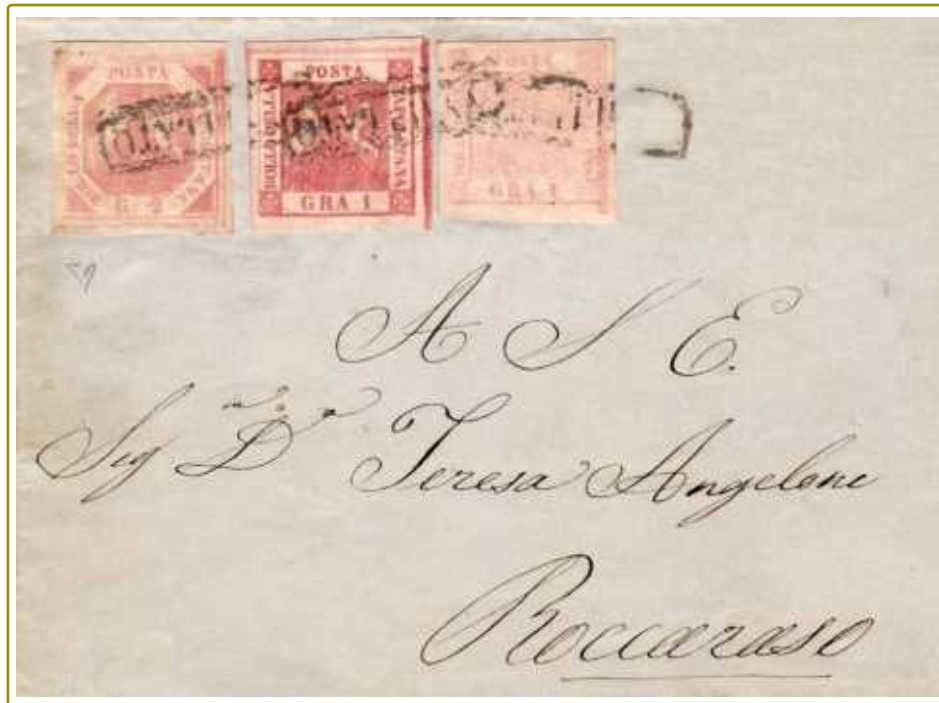 POSTA
G. 2
POSTA
GRA 1
POSTA
GRA 1
A S E.
Sig.na D.a Teresa Angelone
Roccaraso